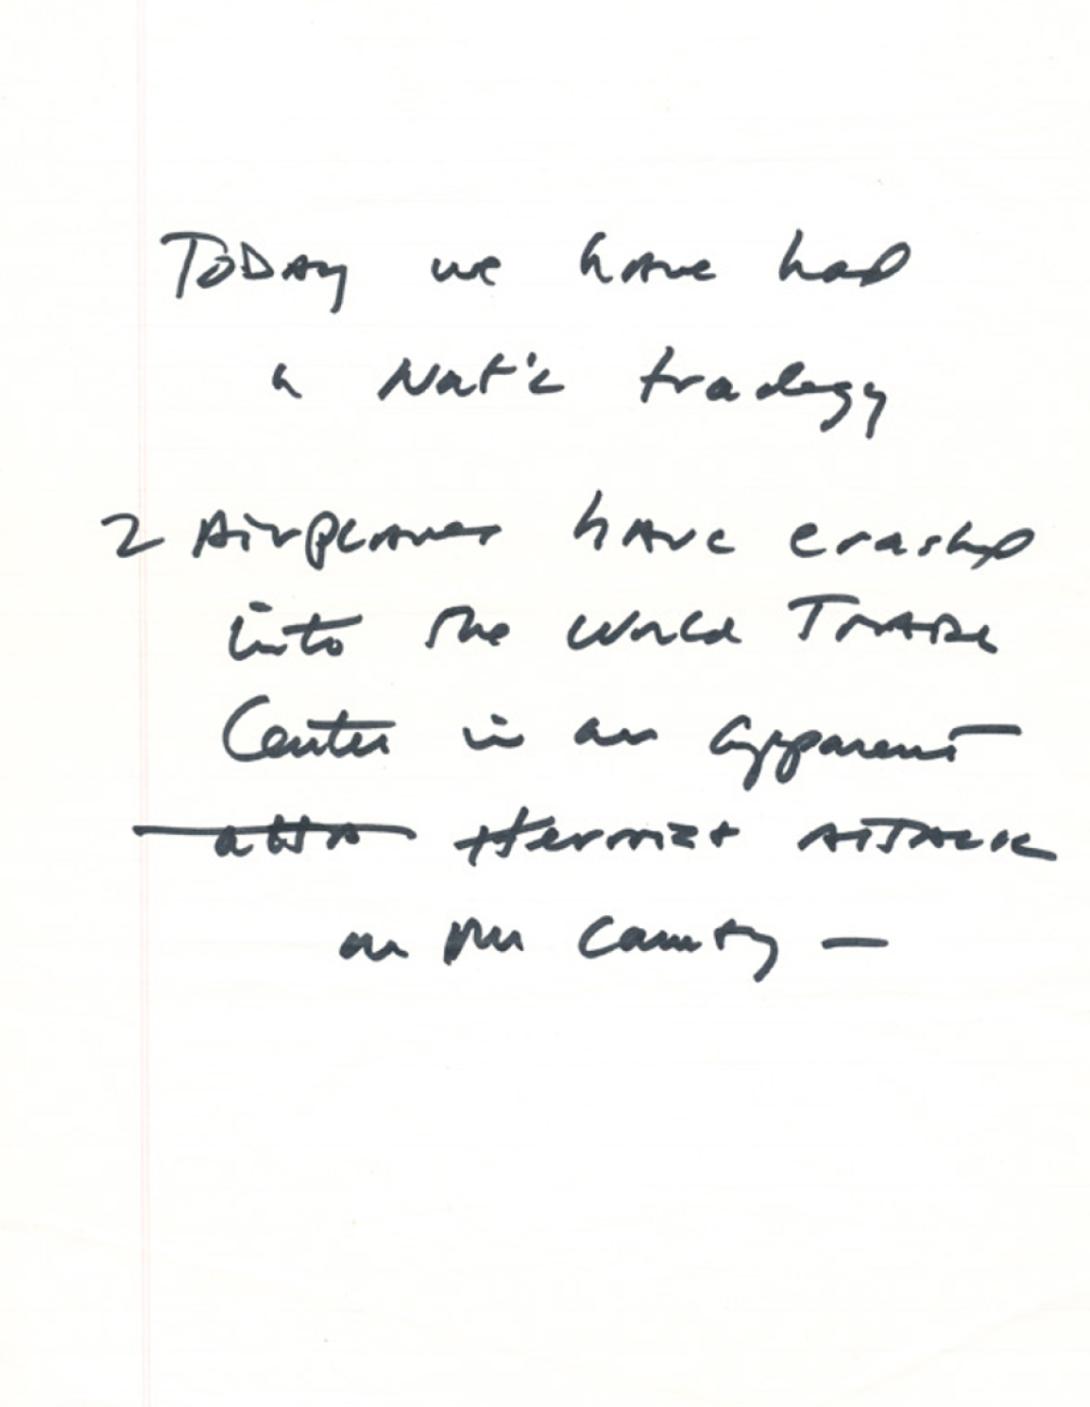 Today we have had
a Nat'l tradegy
2 Airplanes have crashed
into the World Trade
Center in an apparent
terrorist attack
on our country —